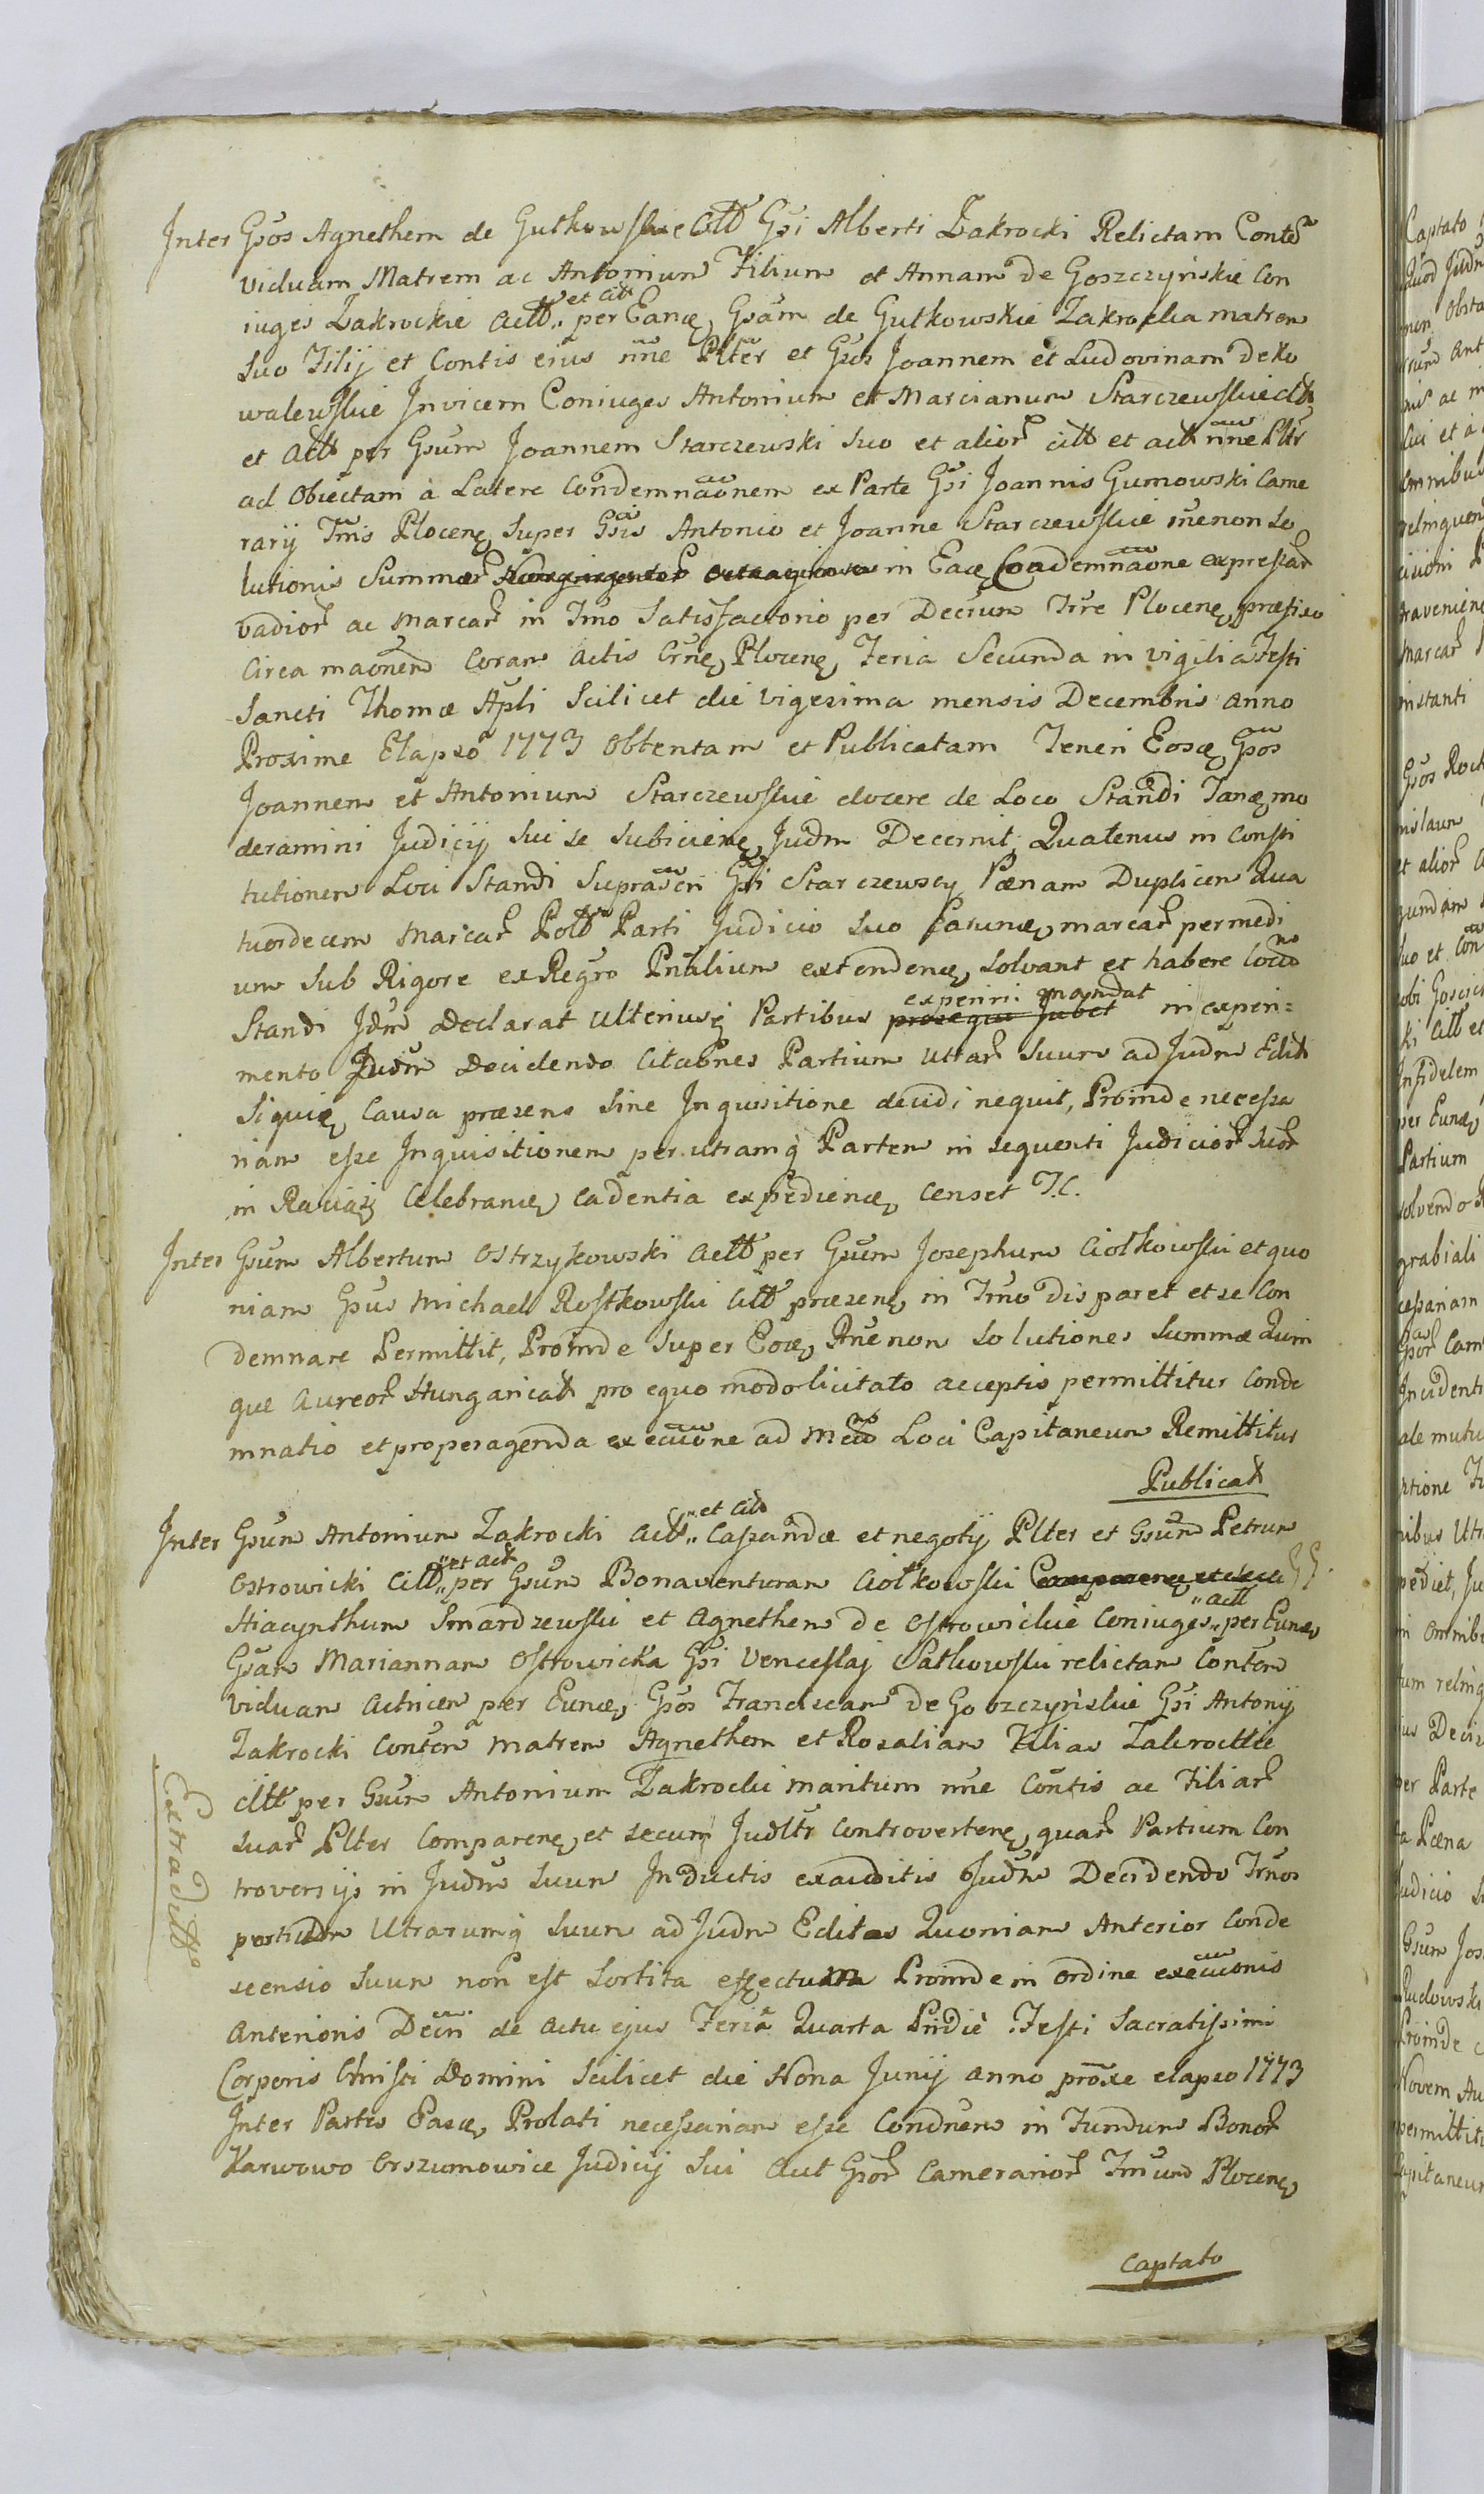 Inter Gsos Agnethem de Gutkowskie Citt Gsi Alberti Zakrocki Relictam Contē
viduam Matrem ac Antonium Filium et Annam de Goszczyńskie Con
iuges Zakrockie Actt et Citt per Eandę Gsam de Gutkowskie Zakrocka matrem
suo Filij et Contis ejus nne Plter et Gsos Joannem et Ludovinam de Ko
walewskie Invicem Coniuges Antonium et Marcianum Starczewskie Citt
et Actt per Gsum Joannem Starczewski suo et alior citt et actt nne Pltr
ad Obiectam à Latere Condemnaonem ex Parte Gsi Joannis Gumowski Came
rarij Trris Plocenę super Gsis Antonio et Joanne Starczewskie rne non so
lutionis Summar in Eadę Condemnaone expressar
vadior ac marcar in Trno Satisfactorio per Decrum Trre Plocenę præfixo
Circa maonem Coram Actis Crne Plocenę Feria Secunda in vigilia Festi
Sancti Thomæ Apli Scilicet die vigesima mensis Decembris anno
Proxime Elapso 1773 obtentam et Publicatam Teneri Eosdę Gsos
Joannem et Antonium Starczewskie docere de Loco Standi Tandę mo
deramini Judicij sui se subiicienę Judm Decernit, Quatenus in consti
tutionem Loci Standi Suprascri Gsi Starczewscy Pænam Duplicem Qua
tuordecem Marcar Poll Parti Judicio suo marcar per medi
um sub Rigore ex Regro Pntalium extendendę solvant et habere Locum
Standi Jdm declarat ulteriusq Partibus prosequi jubet experiri mandat in experi=
mento Judm Decidendo Citatnes Partium utrar suum ad Judm Edit
Siquidę Causa præsens sine Inquisitione decidi nequit, Proinde necessa
riam esse Inquisitionem per utramq Partem in sequenti Judicior suor
in Raciąż Celebrandę cadentia expediendę censet J.C.
Inter Gsum Albertum Ostrzykowski actt per Gsum Josephum Ciołkowski et quo
niam Gsus Michael Rostkowski Citt præsenę in Trno disparet et se Con
demnare Permittit, Proinde super Eodę Rne non solutiones summæ Quin
que Aureor Hungaricali pro equo modo licitato acceptis permittitur Conde
mnatio et pro peragenda executione ad Loci Capitaneum Remittitur
Publicat
Inter Gsum Antonium Zakrocki actt et citt Cassandæ et negotij Plter et Gsum Petrum
Ostrowicki Citt et act per Gsum Bonaventuram Ciołkowski
Hiacynthum Smardzewski et Agnethem de Ostrowickie Coniuges actt per Eundę
Gsam Mariannam Ostrowicka Gsi Venceslaj Patkowski relictam Contem
viduam actricem per Eundę Gsos Franciscam de Goszczyńskie Gsi Antonij
Zakrocki Contem matrem Agnethem et Rosaliam Filias Zakrockie
citt per Gsum Antonium Zakrocki maritum nne Contis ac Filiar
suar Plter Comparenę et secum Judltr Controvertenę quar Partium Con
troversijs in Judm suum Inductis exauditis Judm Decidendo Trnos
partium Utrarumq suum ad Judm Editos Quoniam Anterior Conde
scensio suum non est sortita effectum Proinde in ordine executionis
Anterioris Decri de actu ejus Feria Quarta Pridie Festi Sacratissimi
Corporis Christi Domini Scilicet die Nona Junij anno proxe elapso 1773
Inter Partes Easdę Prolati necessariam esse Condnem in Fundum Bonor
Karwowo Orszumowice Judicij sui aut Gsor Camerarior Trrum Plocenę
Captato
Extraditt